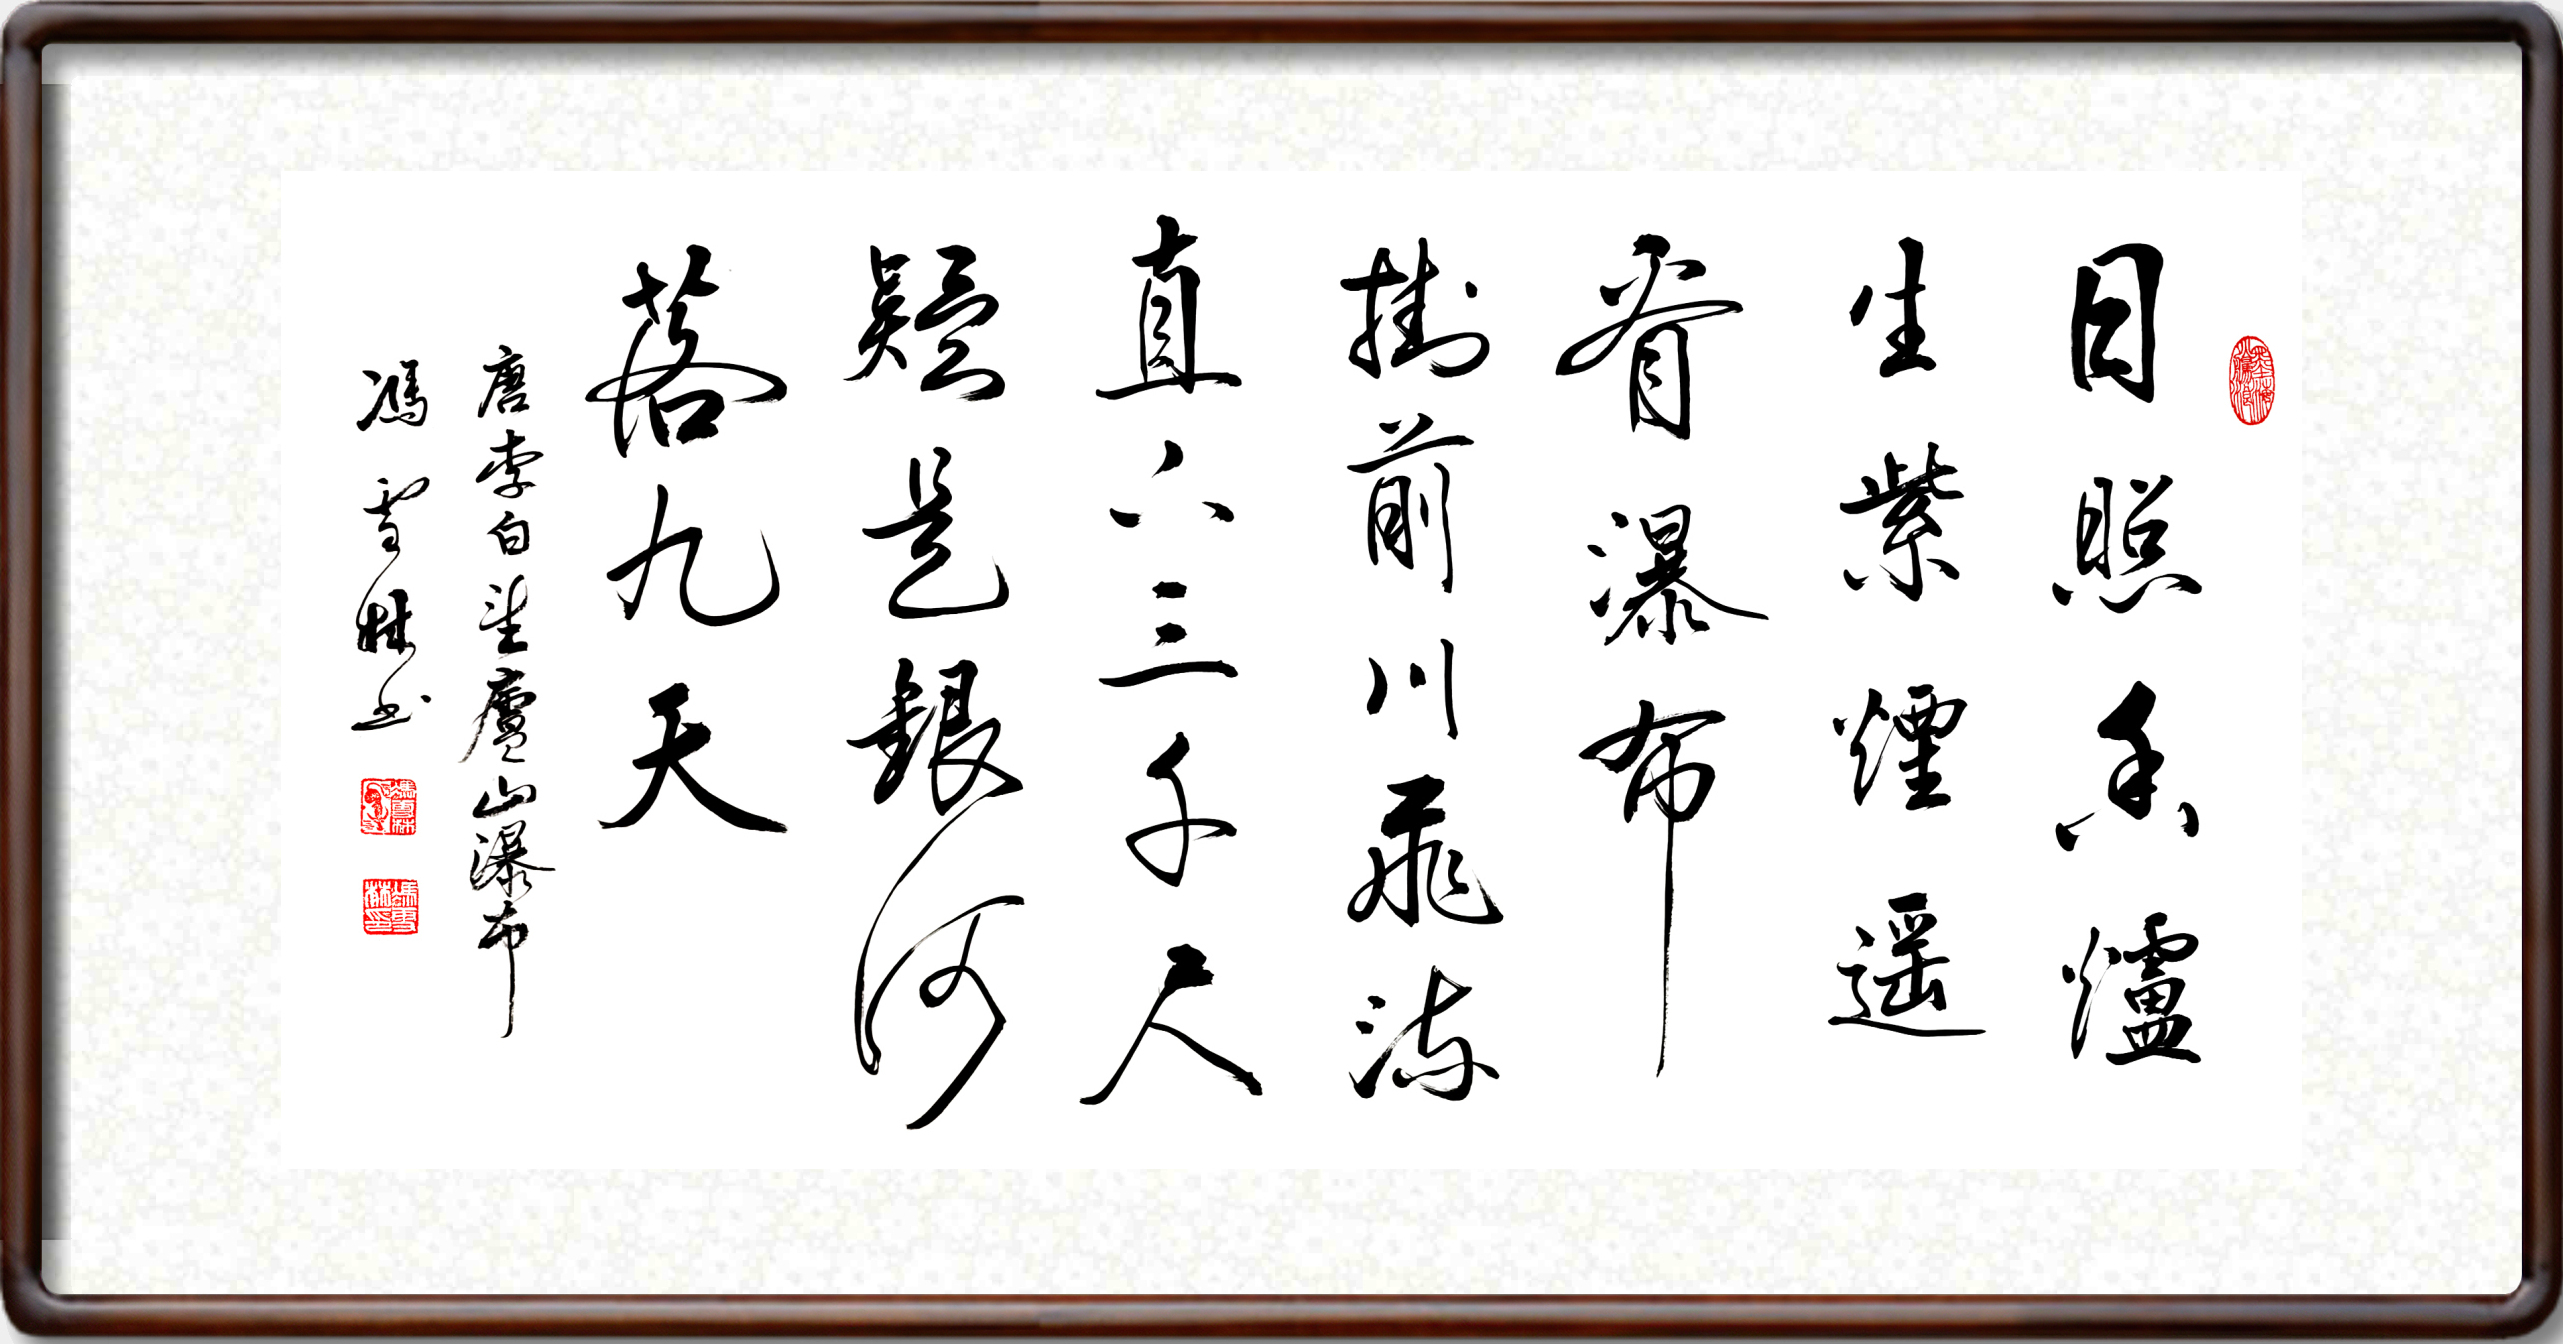 日照香爐
生紫煙遥
看瀑布
掛前川飛流
直下三千尺
疑是銀河
落九天
唐李白望廬山瀑布
馮雪林书
馮雪林印